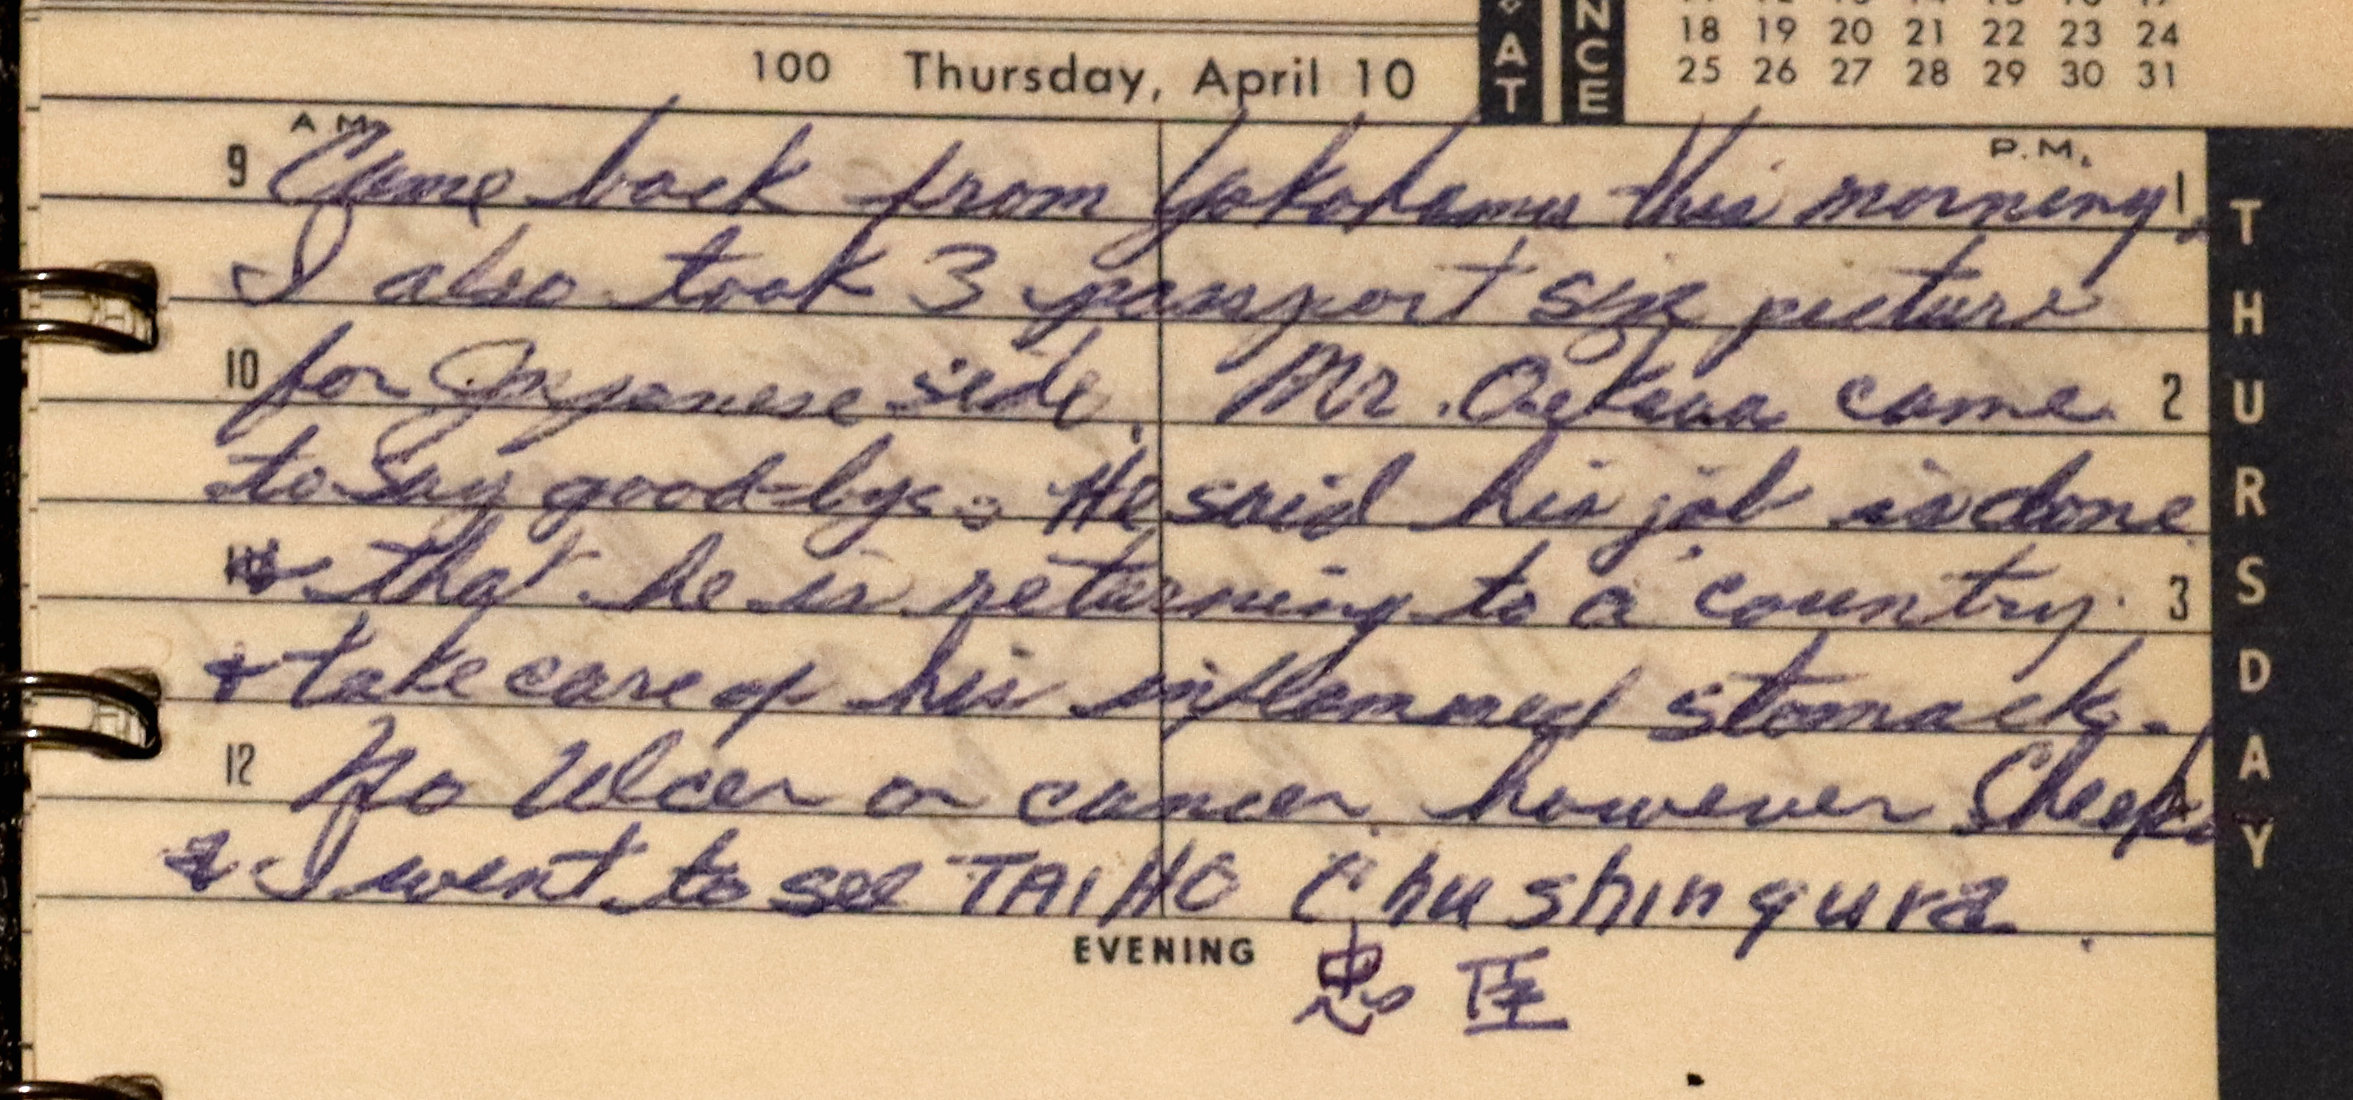 AT
NCE
18 19 20 21 22 23 24
25 26 27 28 29 30 31
100 Thursday, April 10
A M.
P.M.
9 Came back from Yokohama this morning. 1
I also took 3 passport size picture
10 for Japanese side. Mr. came 2
to say good-bye. He said his job is done
& that he is returning to a country 3
& take care of his inflammed stomack.
12 No Ulcer or cancer however
& I went to see TAIHO Chushingura.
EVENING
忠 臣
THURSDAY